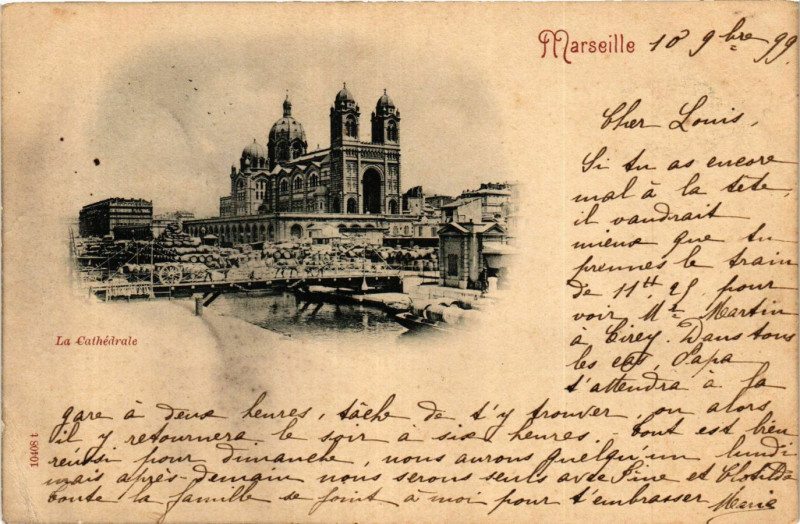 Marseille 10 9bre 99
Cher Louis,
Si tu as encore
mal à la tête,
il vaudrait
mieux que tu
prennes le train
de 11h 25 pour
voir Mr Martin
à Cirey. Dans tous
les cas, Papa
t'attendra à la
gare à deux heures, tâche de t'y trouver, ou alors
il y retournera le soir à six heures. Tout est bien
réussi pour dimanche, nous aurons quelqu'un lundi
mais après-demain nous serons seuls avec Fine et Clotilde
toute la famille se joint à moi pour t'embrasser Marie
La Cathédrale
10408 t